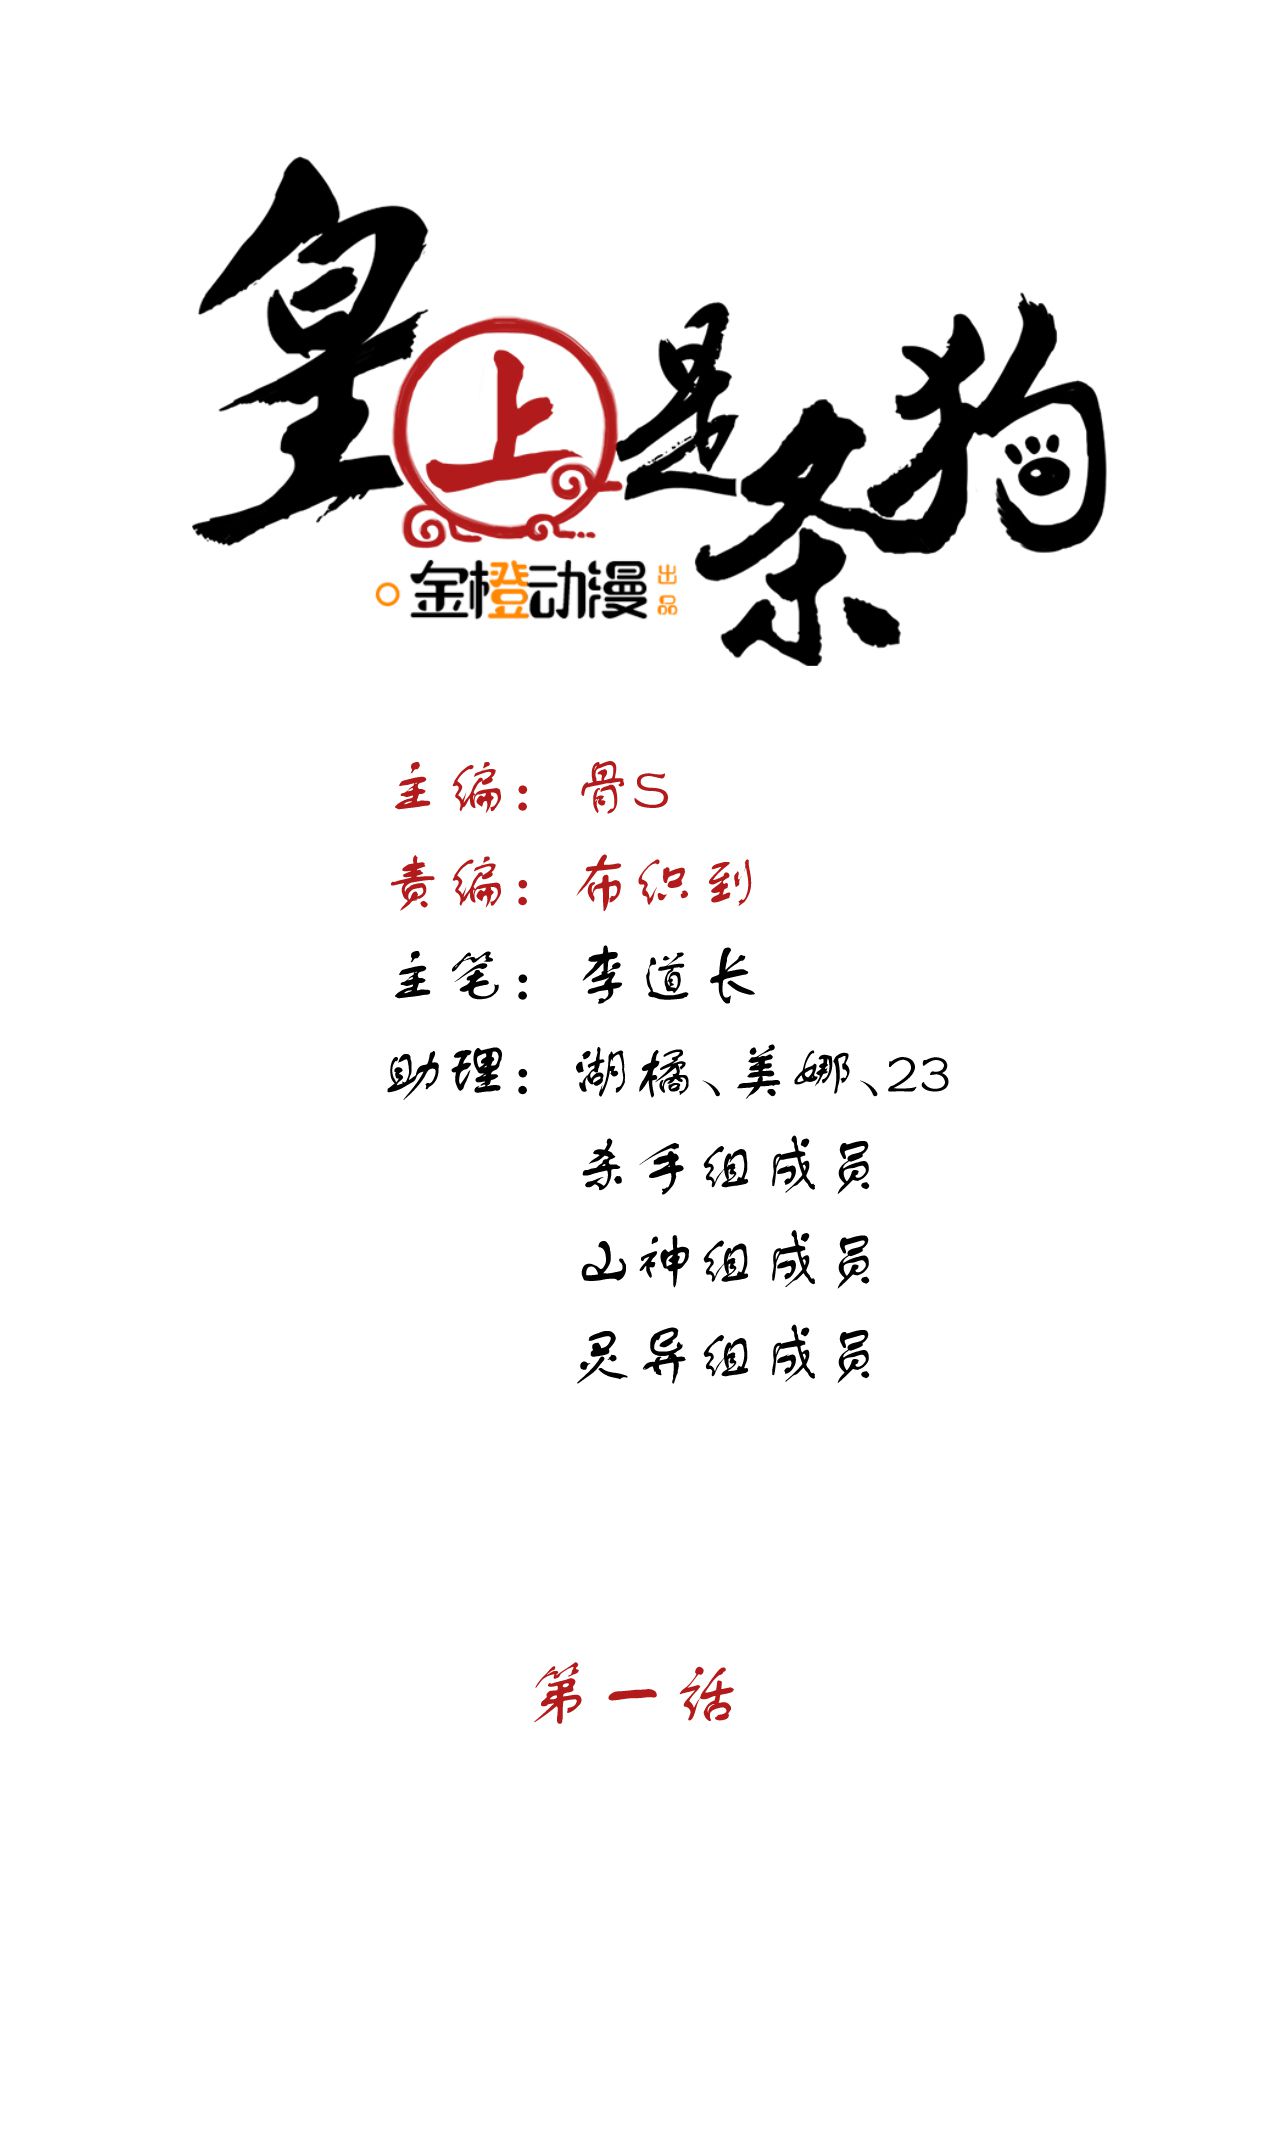 皇上是条狗
金橙动漫出品
主编：骨S
责编：布织到
主笔：李道长
助理：湖橘、美娜、23
杀手组成员
山神组成员
灵异组成员
第一话